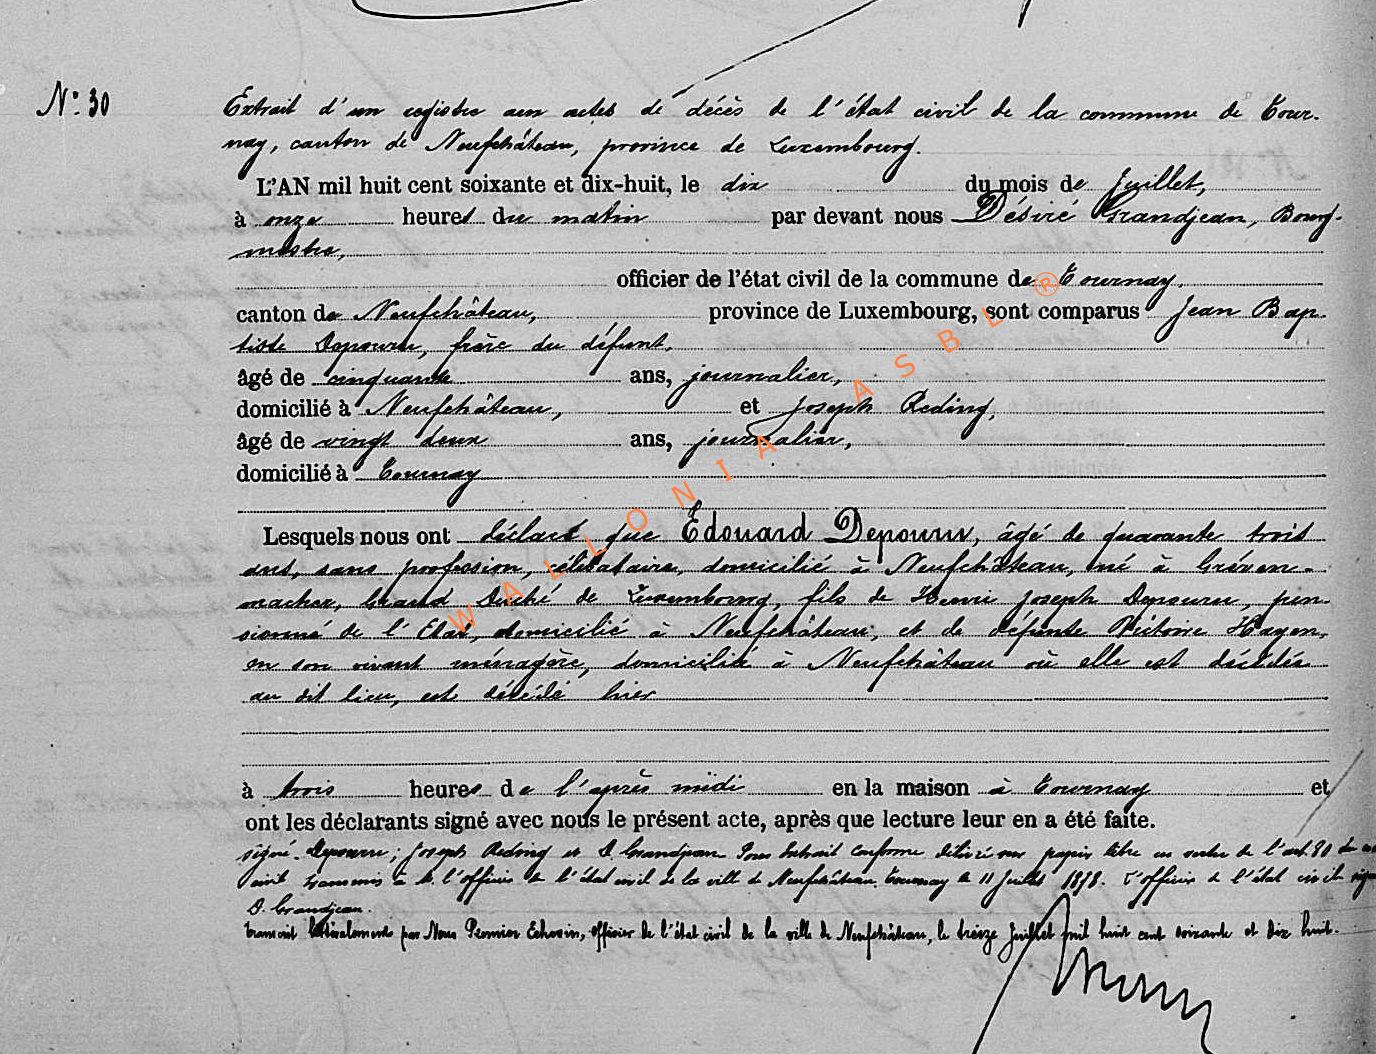 N° 30
Extrait d'un registre aux actes de décès de l'état civil de la commune de Tour-
nay, canton de Neufchâteau, province de Luxembourg.
L'AN mil huit cent soixante et dix-huit, le dix du mois de Juillet,
à onze heures du matin par devant nous Désiré Grandjean, Bourg-
mestre,
officier de l'état civil de la commune de Tournay,
canton de Neufchâteau, province de Luxembourg, sont comparus Jean Bap-
tiste Depouru, frère du défunt,
âgé de cinquante ans, journalier,
domicilié à Neufchâteau, et Joseph Reding,
âgé de vingt deux ans, journalier,
domicilié à Tournay
Lesquels nous ont déclaré que Edouard Depouru, âgé de quarante trois
ans, sans profession, célibataire, domicilié à Neufchâteau, né à Gréven-
macher, Grand Duché de Luxembourg, fils de Henri Joseph Depouru, pen-
sionné de l'Etat, domicilié à Neufchâteau, et de défunte Victoire Hayen,
en son vivant ménagère, domiciliée à Neufchâteau où elle est décédée
au dit lieu, est décédé hier
à trois heures de l'après midi en la maison à Tournay et
ont les déclarants signé avec nous le présent acte, après que lecture leur en a été faite.
signé. Depouru; Joseph Reding et D. Grandjean Pour Extrait conforme délivré sur papier libre en vertu de l'art 80 du
civil transmis à M. l'officier de l'état civil de la ville de Neufchâteau. Tournay le 11 Juillet 1878. l'officier de l'état civil
D. Grandjean.
transcrit littéralement par Nous Premier Echevin, officier de l'état civil de la ville de Neufchâteau, le treize Juillet mil huit cent soixante et dix huit.
WALLONIA ASBL ®